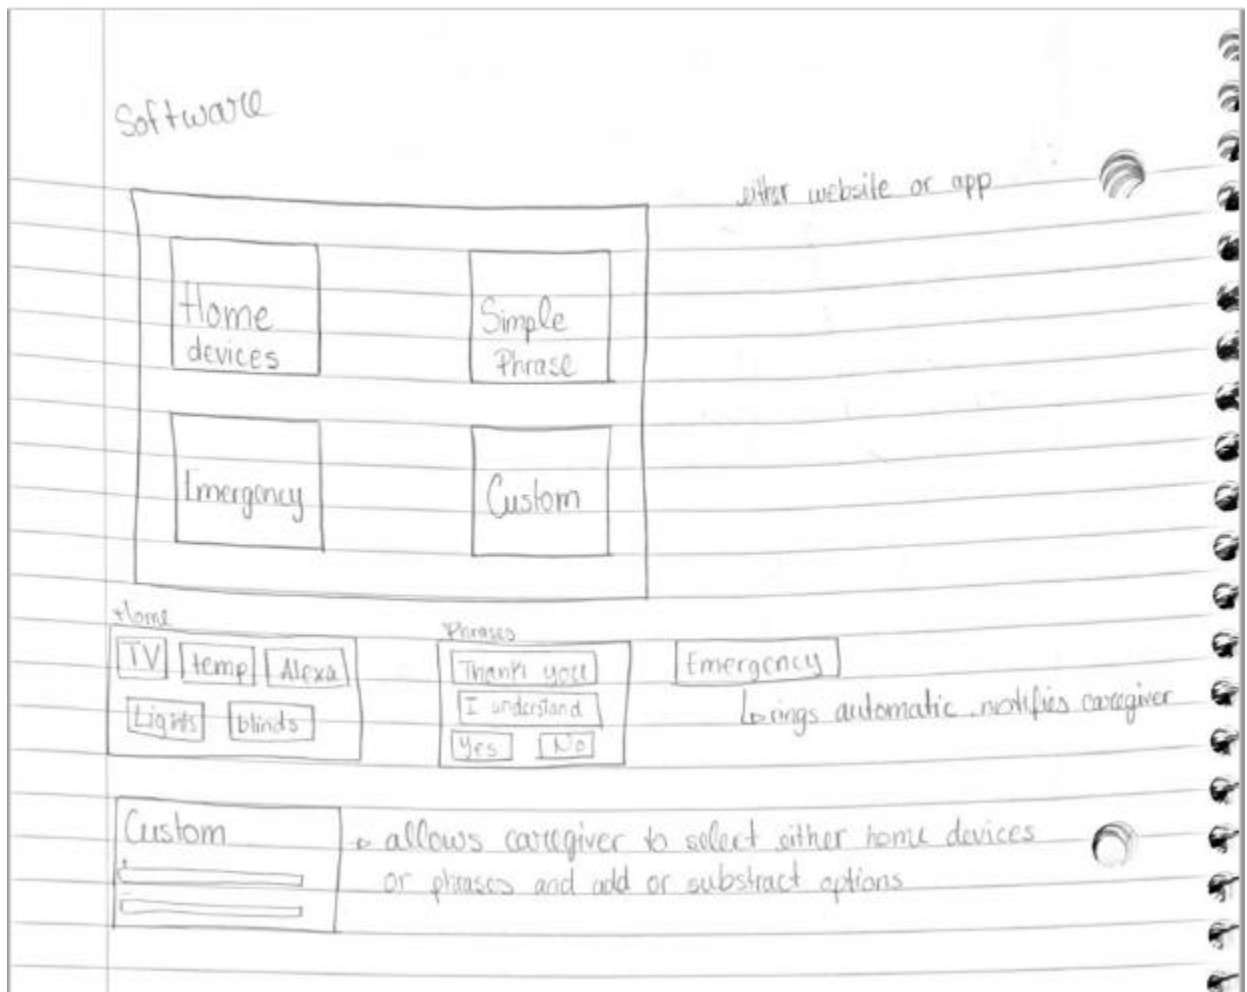 Software
either website or app
Home
devices
Simple
Phrase
Emergency
Custom
Home
TV temp Alexa
Lights blinds
Phrases
Thank you
I understand
Yes No
Emergency
rings automatic notifies caregiver
Custom
allows caregiver to select either home devices
or phrases and add or substract options